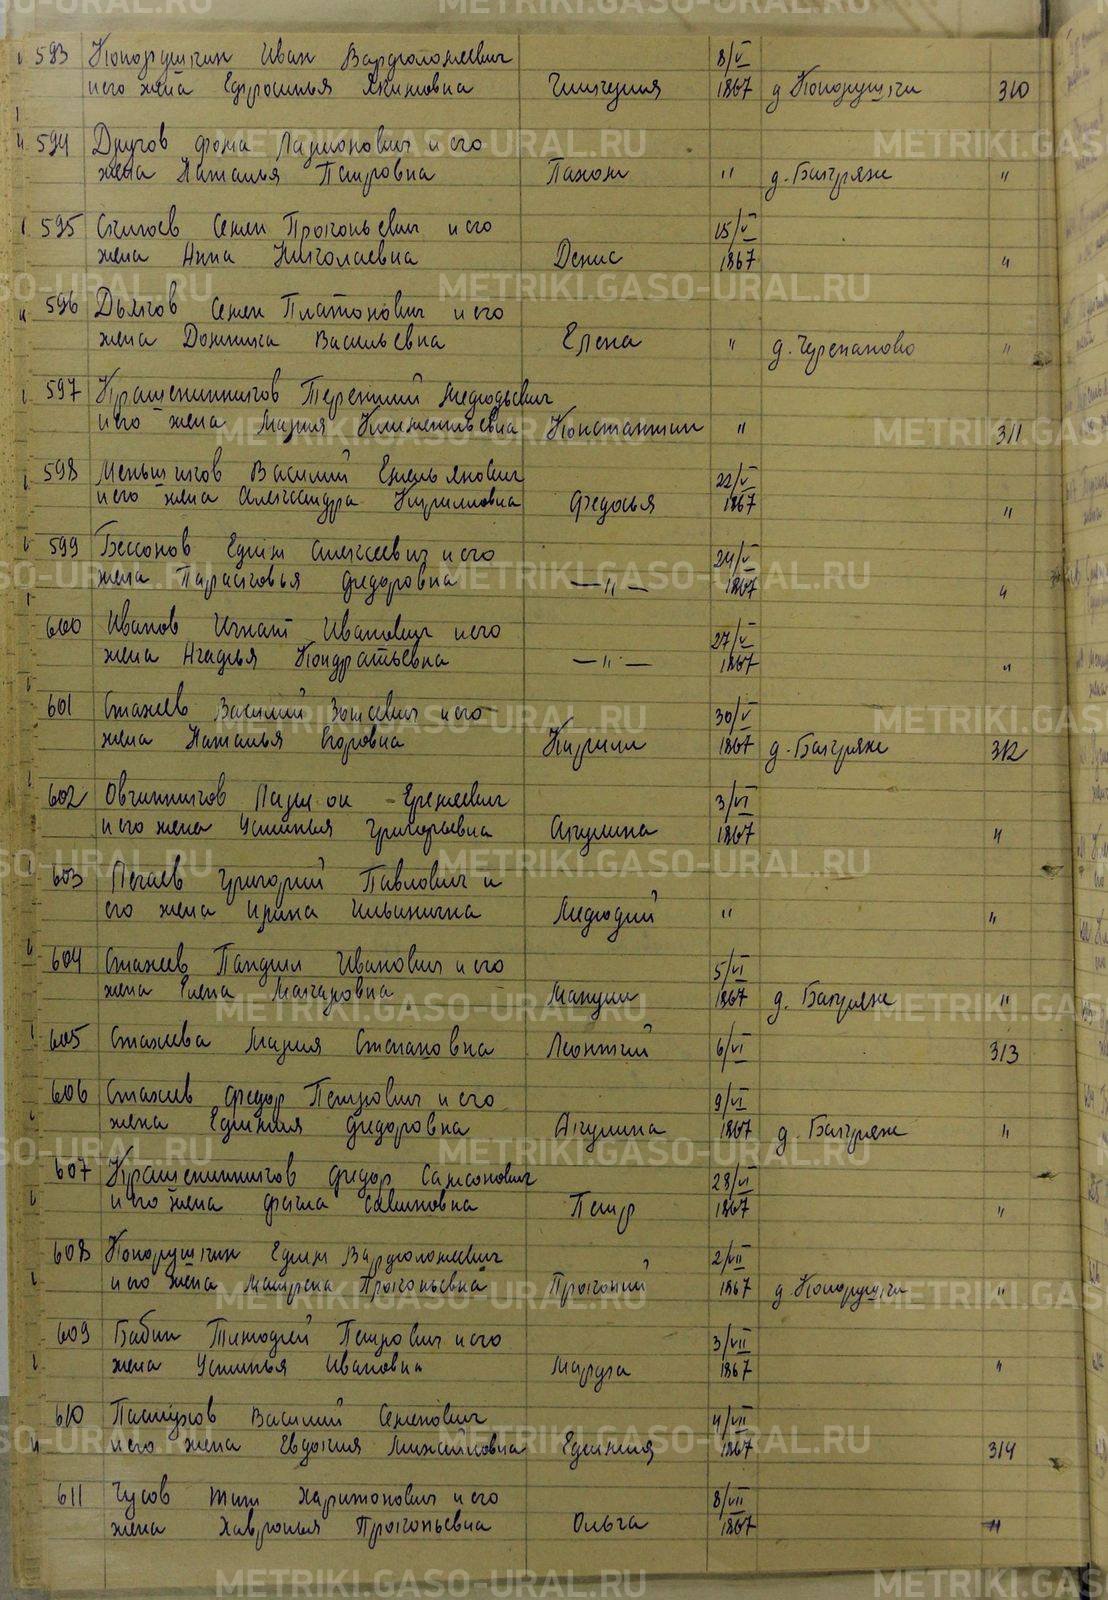 593 Конорушкин Иван Варфоломеевич 8/V
и его жена Ефросинья Якимовна Гликерия 1867 д Конорушки 310
594 Другов Фома Ларионович и его
жена Наталья Петровна Пахом " д. Багуряк "
595 Семен Прокопьевич и его 15/V
жена Анна Николаевна Денис 1867 "
596 Дьячков Семен Платонович и его
жена Домника Васильевна Елена " д. Черепаново "
597 Крашенинников Терентий Мефодьевич
и его жена Мария Климентьевна Константин " 311
598 Меньшиков Василий Емельянович 22/V
и его жена Александра Кирилловна Федосья 1867 "
599 Бессонов Ефим Алексеевич и его 24/V
жена Парасковья Федоровна —"— 1867 "
600 Иванов Игнат Иванович и его 27/V
жена Агафья Кондратьевна —"— 1867 "
601 Стахеев Василий Зотеевич и его 30/V
жена Наталья Егоровна Кирилл 1867 д. Багуряк 312
602 Овчинников Ларион Еремеевич 3/VI
и его жена Устинья Григорьевна Акулина 1867 "
603 Григорий Павлович и
его жена Ирина Ильинична Мефодий " "
604 Стахеев Панфил Иванович и его 5/VI
жена Елена Макаровна Мануил 1867 д. Багуряк "
605 Стахеева Мария Степановна Леонтий 6/VI 313
606 Стахеев Федор Петрович и его 9/VI
жена Ефимия Федоровна Акулина 1867 д. Багуряк "
607 Крашенинников Федор Самсонович 28/VI
и его жена Фекла Савиновна Петр 1867 "
608 Конорушкин Ефим Варфоломеевич 2/VII
и его жена Матрена Прокопьевна Прокопий 1867 д Конорушки "
609 Бабин Тимофей Петрович и его 3/VII
жена Устинья Ивановна Марфа 1867 "
610 Пастухов Василий Семенович 4/VII
и его жена Евдокия Михайловна Ефимия 1867 314
611 Чусов Тит Харитонович и его 8/VII
жена Хавронья Прокопьевна Ольга 1867 "
METRIKI.GASO-URAL.RU